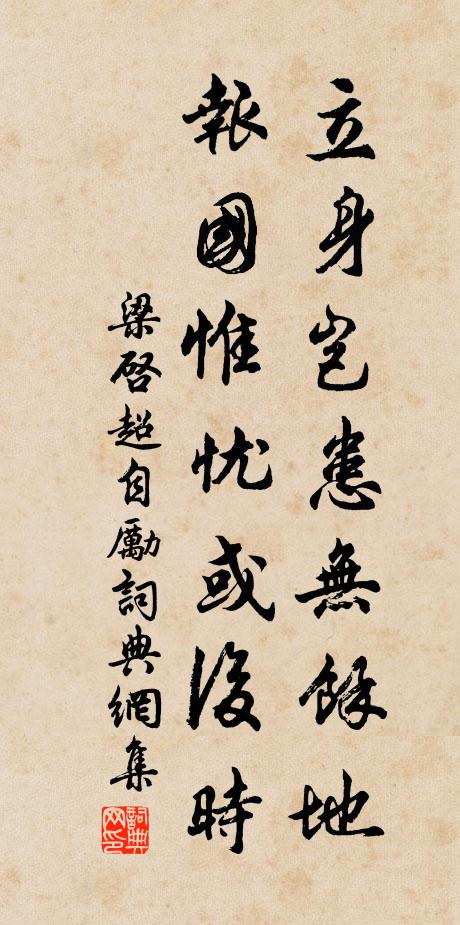 立身岂患無餘地
報國惟忧或後時
梁啓超自勵詞典網集
詞典网印